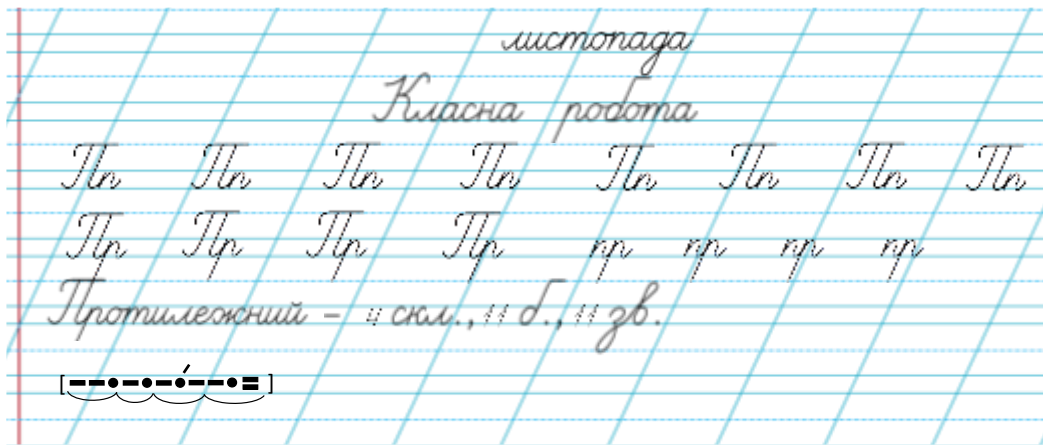 листопада
Класна робота
Пп Пп Пп Пп Пп Пп Пп Пп
Пр Пр Пр Пр пр пр пр пр
Протилежний – 4 скл., 11 б., 11 зв.
[– – • – • – • – – • =]